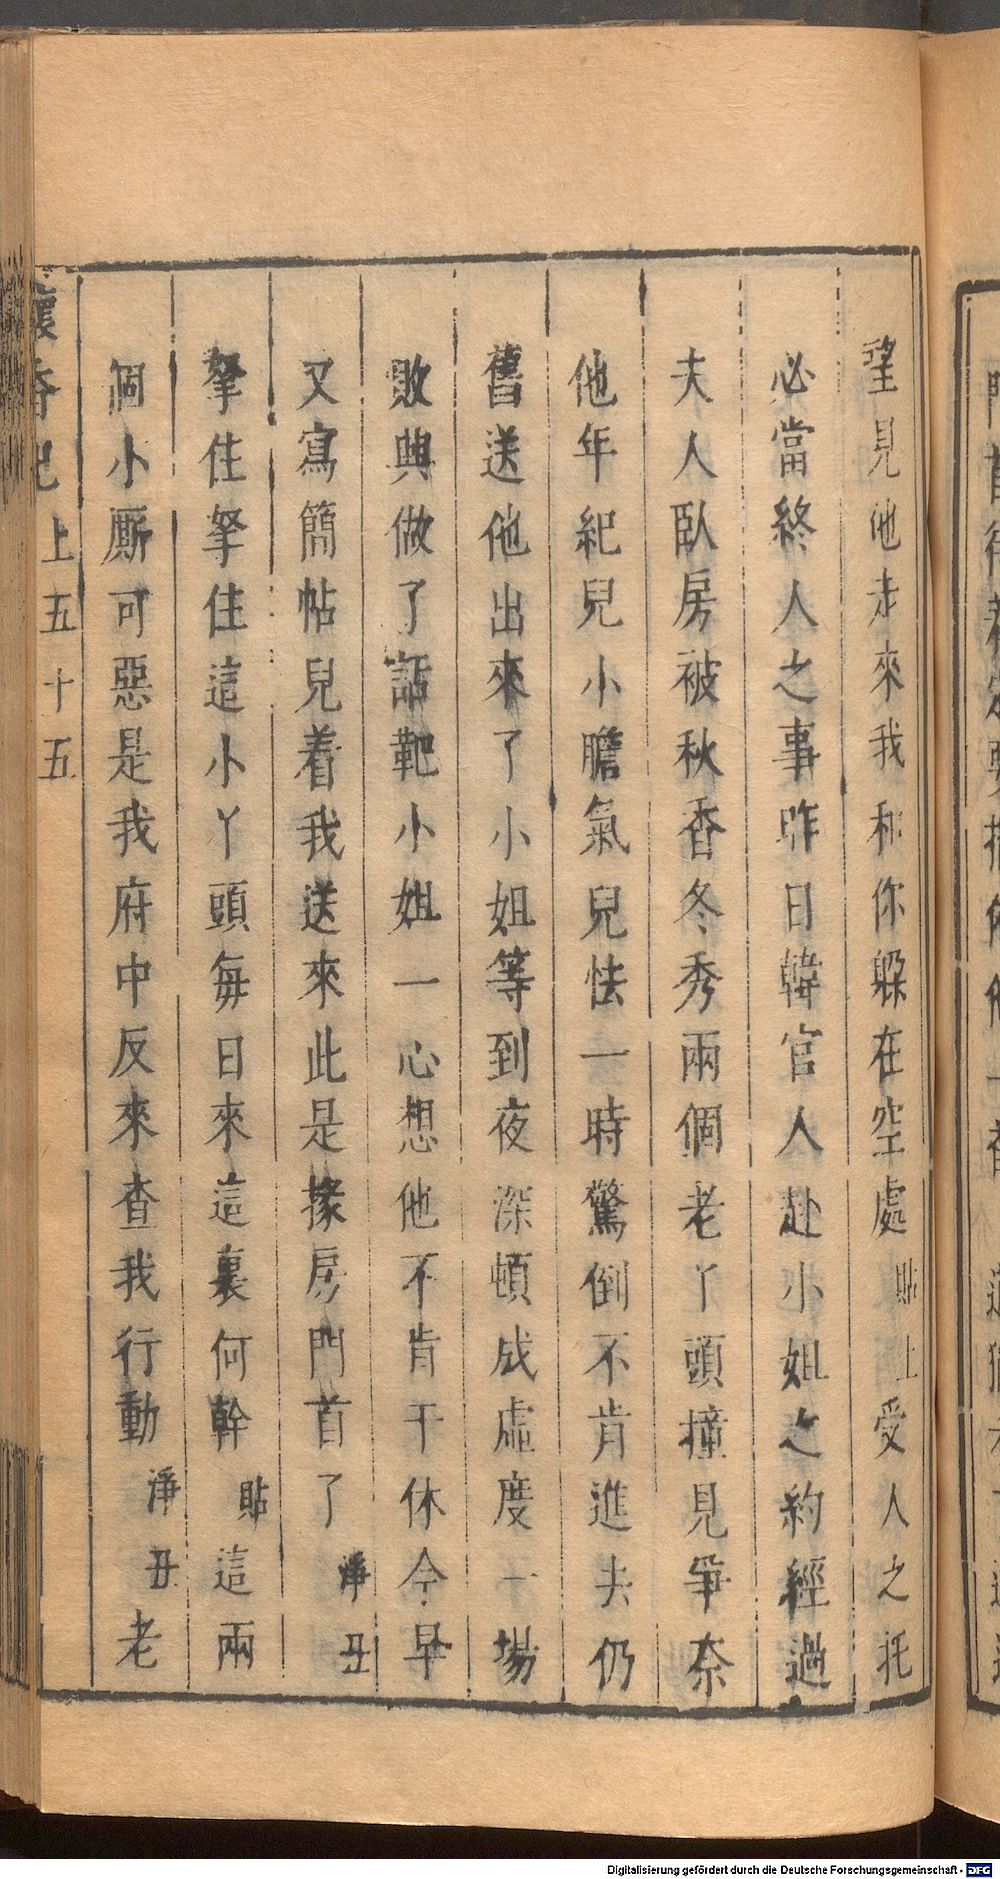 望見他走來我和你躲在空處貼上受人之托
必當終人之事昨日韓官人赴小姐之約經過
夫人臥房被秋香冬秀兩個老丫頭撞見爭奈
他年紀兒小膽氣兒怯一時驚倒不肯進去仍
舊送他出來了小姐等到夜深頓成虛度一場
敗興做了話靶小姐一心想他不肯干休今早
又寫簡帖兒着我送來此是掾房門首了淨丑
拏住拏住這小丫頭每日來這裏何幹貼這兩
個小厮可惡是我府中反來查我行動淨丑老
懷香記 上五十五
Digitalisierung gefördert durch die Deutsche Forschungsgemeinschaft - DFG